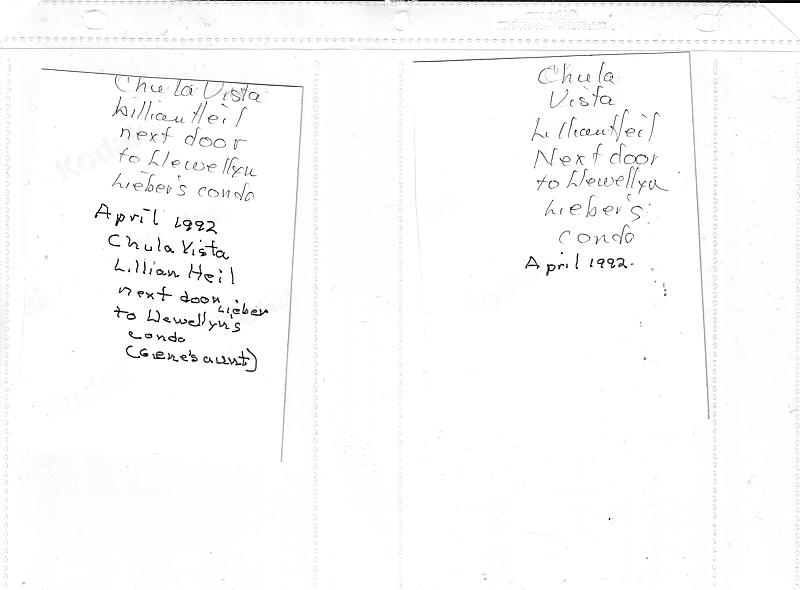 Chula Vista
Lillian Heil
next door
to Llewellyn
Lieber's condo
April 1992
Chula Vista
Lillian Heil
next door Lieber
to Llewellyn's
condo
(Gene's aunt)
Chula
Vista
Lillian Heil
Next door
to Llewellyn
Lieber's
condo
April 1992.
Kodak